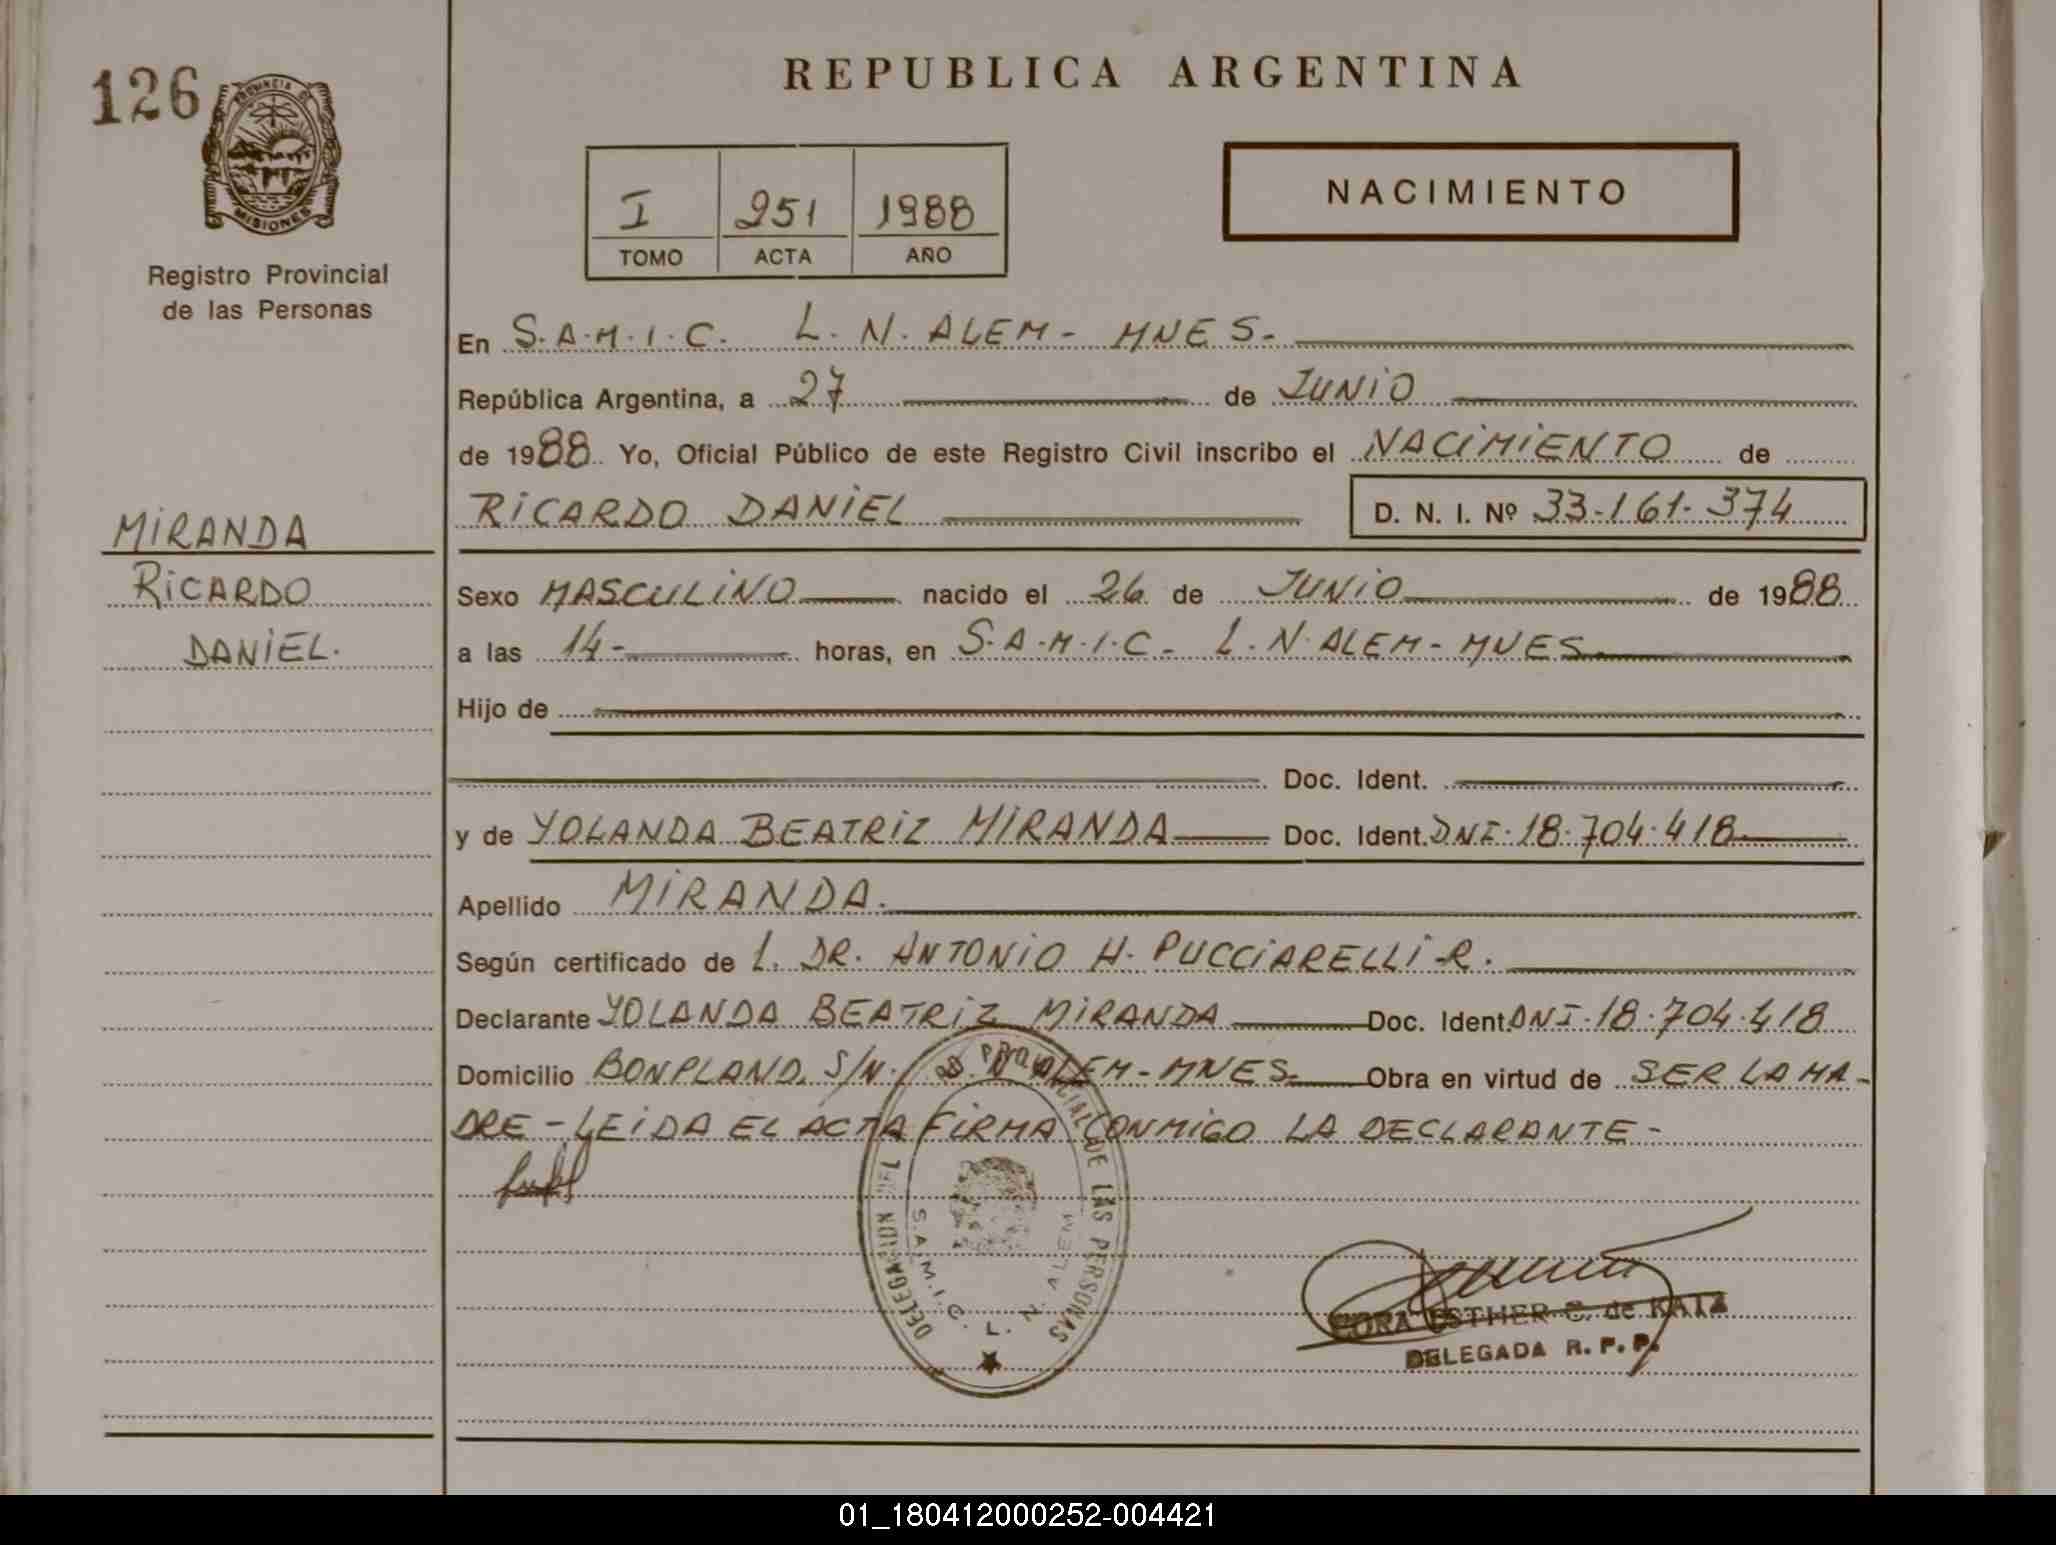 126
PROVINCIA DE
MISIONES
Registro Provincial
de las Personas
REPUBLICA ARGENTINA
I 251 1988
TOMO ACTA AÑO
NACIMIENTO
En S.A.M.I.C. L.N. ALEM - MNES.
República Argentina, a 27 de JUNIO
de 1988. Yo, Oficial Público de este Registro Civil inscribo el NACIMIENTO de
RICARDO DANIEL D. N. I. Nº 33-161-374
MIRANDA
RICARDO
DANIEL.
Sexo MASCULINO nacido el 26 de JUNIO de 1988
a las 14- horas, en S.A.M.I.C. L.N. ALEM - MNES
Hijo de
Doc. Ident.
y de YOLANDA BEATRIZ MIRANDA Doc. Ident. DNI-18.704.418
Apellido MIRANDA.
Según certificado de l. DR. ANTONIO H. PUCCIARELLI-R.
Declarante YOLANDA BEATRIZ MIRANDA Doc. Ident DNI-18.704.418
Domicilio BONPLAND, S/N. ALEM - MNES. Obra en virtud de SER LA MA-
DRE - LEIDA EL ACTA FIRMA CONMIGO LA DECLARANTE -
DELEGACION REG. PROVINCIAL DE LAS PERSONAS
S.A.M.I.C. L. N. ALEM
ESTHER C. de KATZ
DELEGADA R. P. P.
01_180412000252-004421